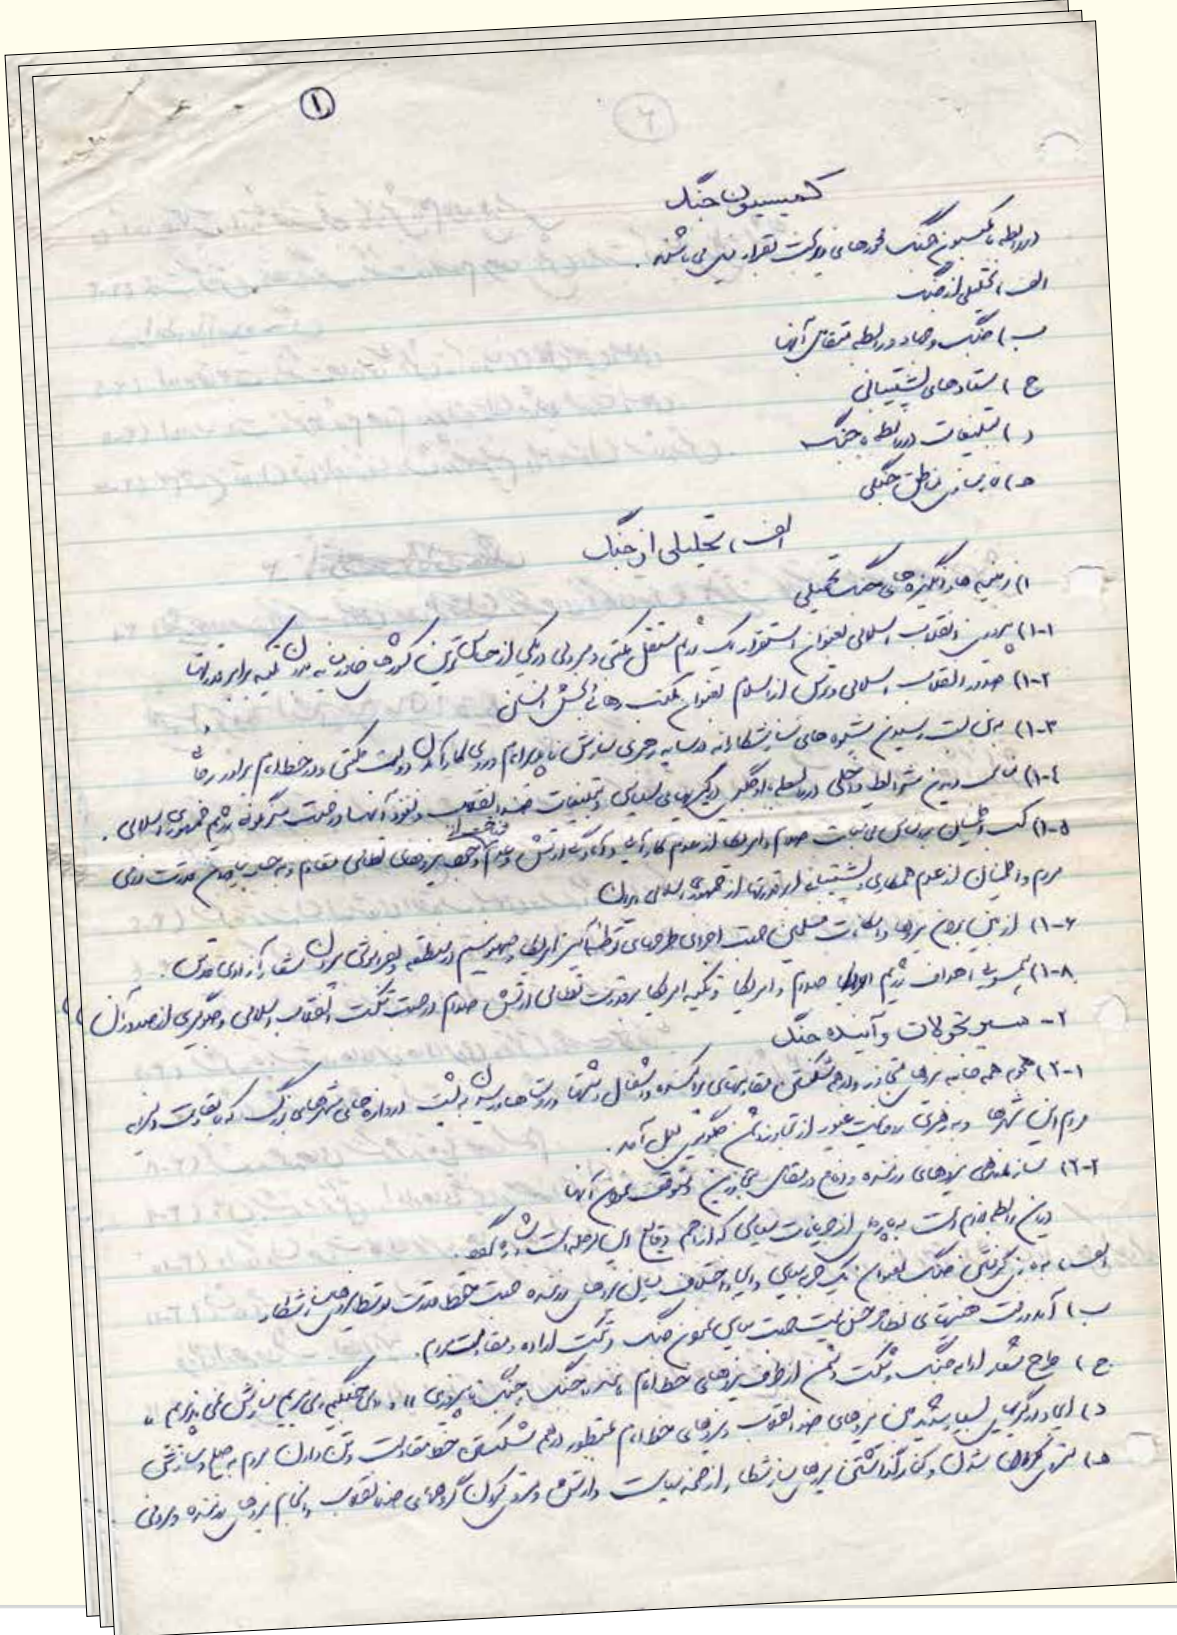 ۱
کمیسیون جنگ
در رابطه با کمیسیون جنگ محورهای بقرار می باشند .
الف ) تحلیلی از جنگ
ب ) جنگ و جهاد و رابطه متقابل آنها
ج ) ستادهای پشتیبانی
د ) تبلیغات در رابطه با جنگ
ه ) بازسازی مناطق جنگی
الف ) تحلیلی از جنگ
۱) زمینه ها و انگیزه های جنگ تحمیلی
۱-۱) پیروزی انقلاب اسلامی بعنوان استقرار یک رژیم مستقل مکتبی و مردمی در یکی از حساس ترین کشورهای خاورمیانه بدون تکیه برابر قدرتها
۱-۲) صدور انقلاب اسلامی و ترس از اسلام بعنوان مکتب رهائی بخش انسانی
۱-۳) به بن بست رسیدن شیوه های سازشکارانه در سایه رهبری سازش ناپذیر امام و روی کار آمدن دولت مکتبی و در خط امام برادر رجائی
۱-۴) شرایط داخلی در رابطه با درگیریهای سیاسی و تبلیغات ضد انقلاب و نفوذ آنها در جهت سرنگونی رژیم جمهوری اسلامی .
۱-۵) کسب اطمینان صدام و امریکا از عدم کارآیی و آمادگی ارتش و عدم وجود نیروهای نظامی مقاوم و به حساب نیاوردن قدرت رزمی
مردم و اطمینان از عدم همکاری و پشتیبانی ابرقدرتها از جمهوری اسلامی ایران
۱-۶) از بین بردن نیروها و امکانات مسلمین جهت اجرای طرحهای توطئه آمیز امریکا و صهیونیسم در منطقه و بفراموشی سپردن شعار آزادی قدس .
۱-۸) همسویی اهداف رژیم صدام و امریکا و تکیه امریکا بر قدرت نظامی ارتش صدام در جهت شکست انقلاب اسلامی و جلوگیری از صدور آن
۲- سیر تحولات و آینده جنگ
۲-۱) هجوم همه جانبه نیروهای متجاوز و درهم شکستن مقاومتهای پراکنده و اشغال دشتها و روستاها و رسیدن به پشت دروازه های شهرهای بزرگ که با مقاومت دلیرانه
مردم این شهرها عبور از جلوگیری بعمل آمد .
۲-۲) سازماندهی نیروهای رزمنده و دفاع در مقابل متجاوزین و متوقف نمودن آنها
در این رابطه لازم است به پاره ای از جریانات سیاسی که از اهم وقایع این مرحله است اشاره گردد .
الف ) جنگ بعنوان یک سیاسی و ایجاد اختلاف میان نیروهای رزمنده جهت حفظ قدرت توسط نیروهای سازشکار
ب ) آمد و رفت هیئتهای جهت سیاسی نمودن جنگ و شکست اراده و مقاومت مردم .
ج ) طرح شعار ادامه جنگ و شکست دشمن از طرف نیروهای خط امام مانند «جنگ جنگ تا پیروزی» و «می جنگیم می میریم سازش نمی پذیریم»
د ) ایجاد درگیریهای بسیار شدید بین نیروهای ضد انقلاب و نیروهای خط امام بمنظور درهم شکستن خط مقاومت و تن دادن مردم به صلح و سازش
ه ) و کنار گذاشتن نیروهای سازشکار از صحنه سیاست و ارتش گروههای ضد انقلاب و انسجام نیروهای رزمنده و مردمی